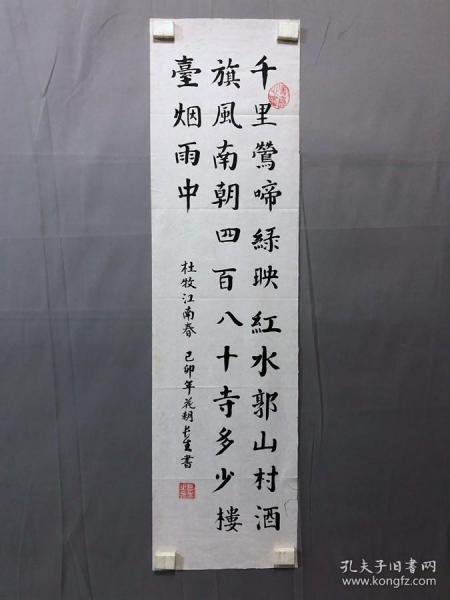 千里鶯啼緑映紅水郭山村酒
旗風南朝四百八十寺多少樓
臺烟雨中
杜牧江南春 己卯年花朝长生書
孔夫子旧书网
www.kongfz.com